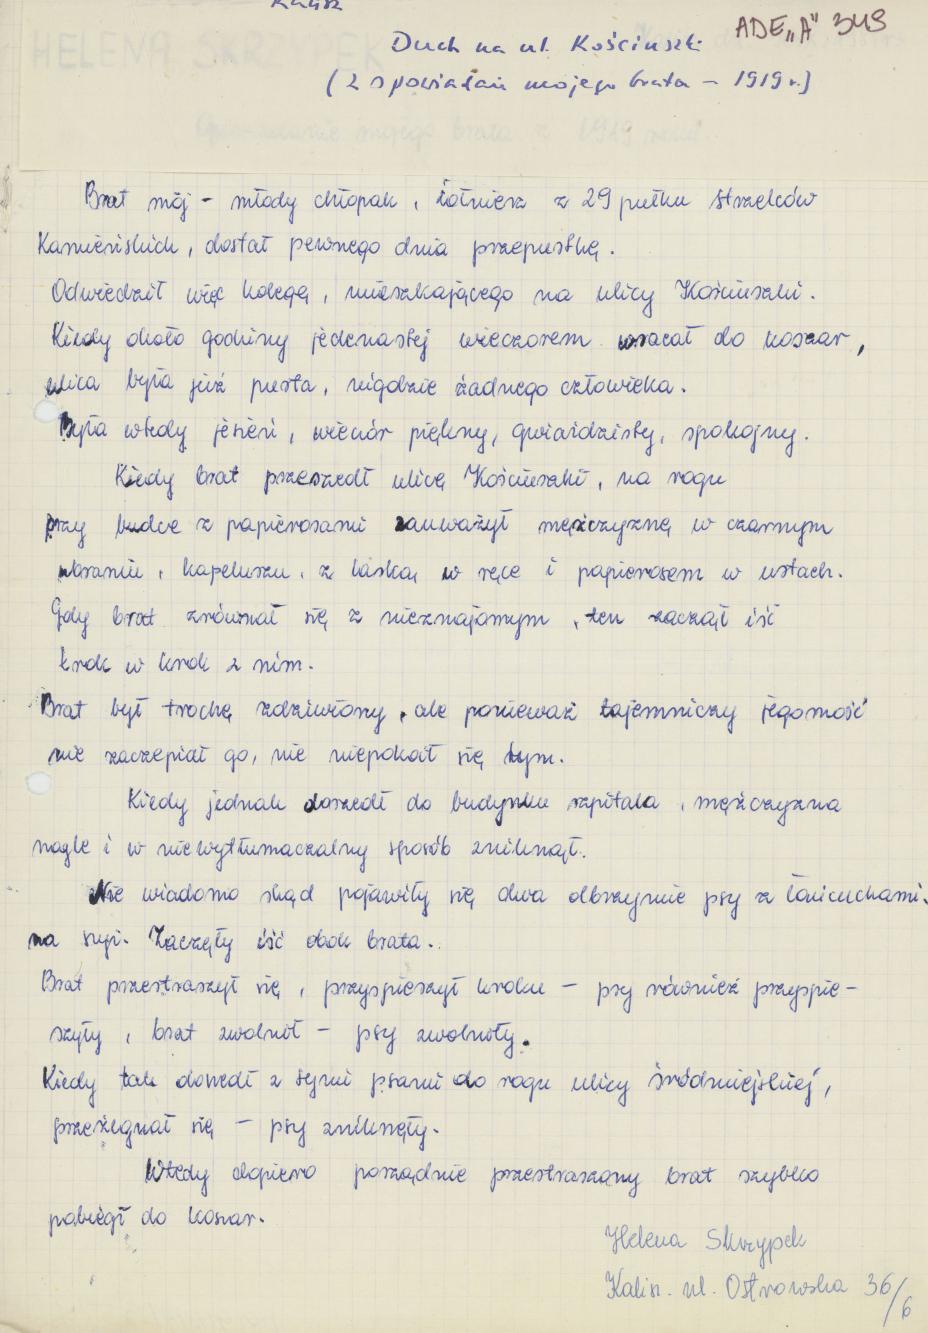 Kalisz
ADE „A" 343
HELENA SKRZYPEK
Duch na ul. Kościuszki
(z opowiadań mojego brata – 1919 r.)
Opowiadanie mojego brata z 1919 roku.
Brat mój – młody chłopak, żołnierz z 29 pułku strzelców
Kamieńskich, dostał pewnego dnia przepustkę.
Odwiedził więc kolegę, mieszkającego na ulicy Kościuszki.
Kiedy około godziny jedenastej wieczorem wracał do koszar,
ulica była już pusta, nigdzie żadnego człowieka.
Była wtedy jesień, wieczór piękny, gwiaździsty, spokojny.
Kiedy brat przeszedł ulicę Kościuszki, na rogu
przy budce z papierosami zauważył mężczyznę w czarnym
ubraniu, kapeluszu, z laską w ręce i papierosem w ustach.
Gdy brat zrównał się z nieznajomym, ten zaczął iść
krok w krok z nim.
Brat był trochę zdziwiony, ale ponieważ tajemniczy jegomość
nie zaczepiał go, nie niepokoił się tym.
Kiedy jednak doszedł do budynku szpitala, mężczyzna
nagle i w niewytłumaczalny sposób zniknął.
Nie wiadomo skąd pojawiły się dwa olbrzymie psy z łańcuchami
na szyi. Zaczęły iść obok brata.
Brat przestraszył się, przyspieszył kroku – psy również przyspie-
szyły, brat zwolnił – psy zwolniły.
Kiedy tak doszedł z tymi psami do rogu ulicy śródmiejskiej,
przeżegnał się – psy zniknęły.
Wtedy dopiero porządnie przestraszony brat szybko
pobiegł do koszar.
Helena Skrzypek
Kalisz. ul. Ostrowska 36/6